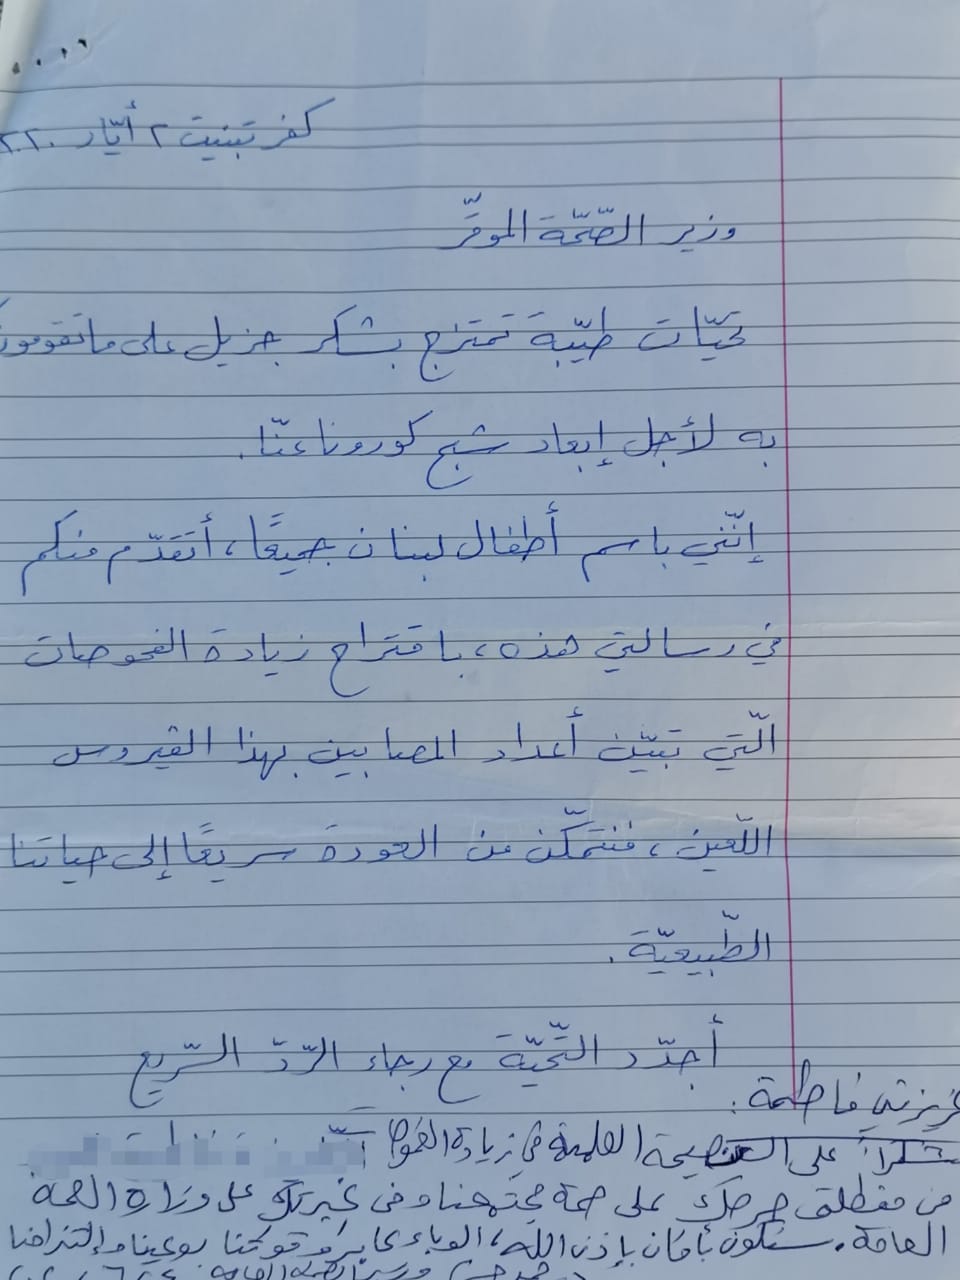 كفر تبنيت ٢ أيّار ٢٠٢٠
وزير الصّحّة الموقّر
تحيّات طيّبة تمتزج بشكر جزيل على ما تقومون
به لأجل إبعاد شبح كورونا عنّا.
إنّني باسم أطفال لبنان جميعًا، أتقدّم منكم
في رسالتي هذه، باقتراح زيادة الفحوصات
الّتي تبيّن أعداد المصابين بهذا الڤيروس
اللّعين، فنتمكّن من العودة سريعًا إلى حياتنا
الطّبيعيّة.
أجدّد التّحيّة مع رجاء الرّدّ السّريع
عزيزتي فاطمة:
شكراً على النصيحة العلمية في زيادة الفحوص
من منطلق حرصك على صحة مجتمعنا ومن غيرتك على وزارة الصحة
العامة. ستكون بأمان بإذن الله، الوباء عابر وقوتنا بوعينا وإلتزامنا